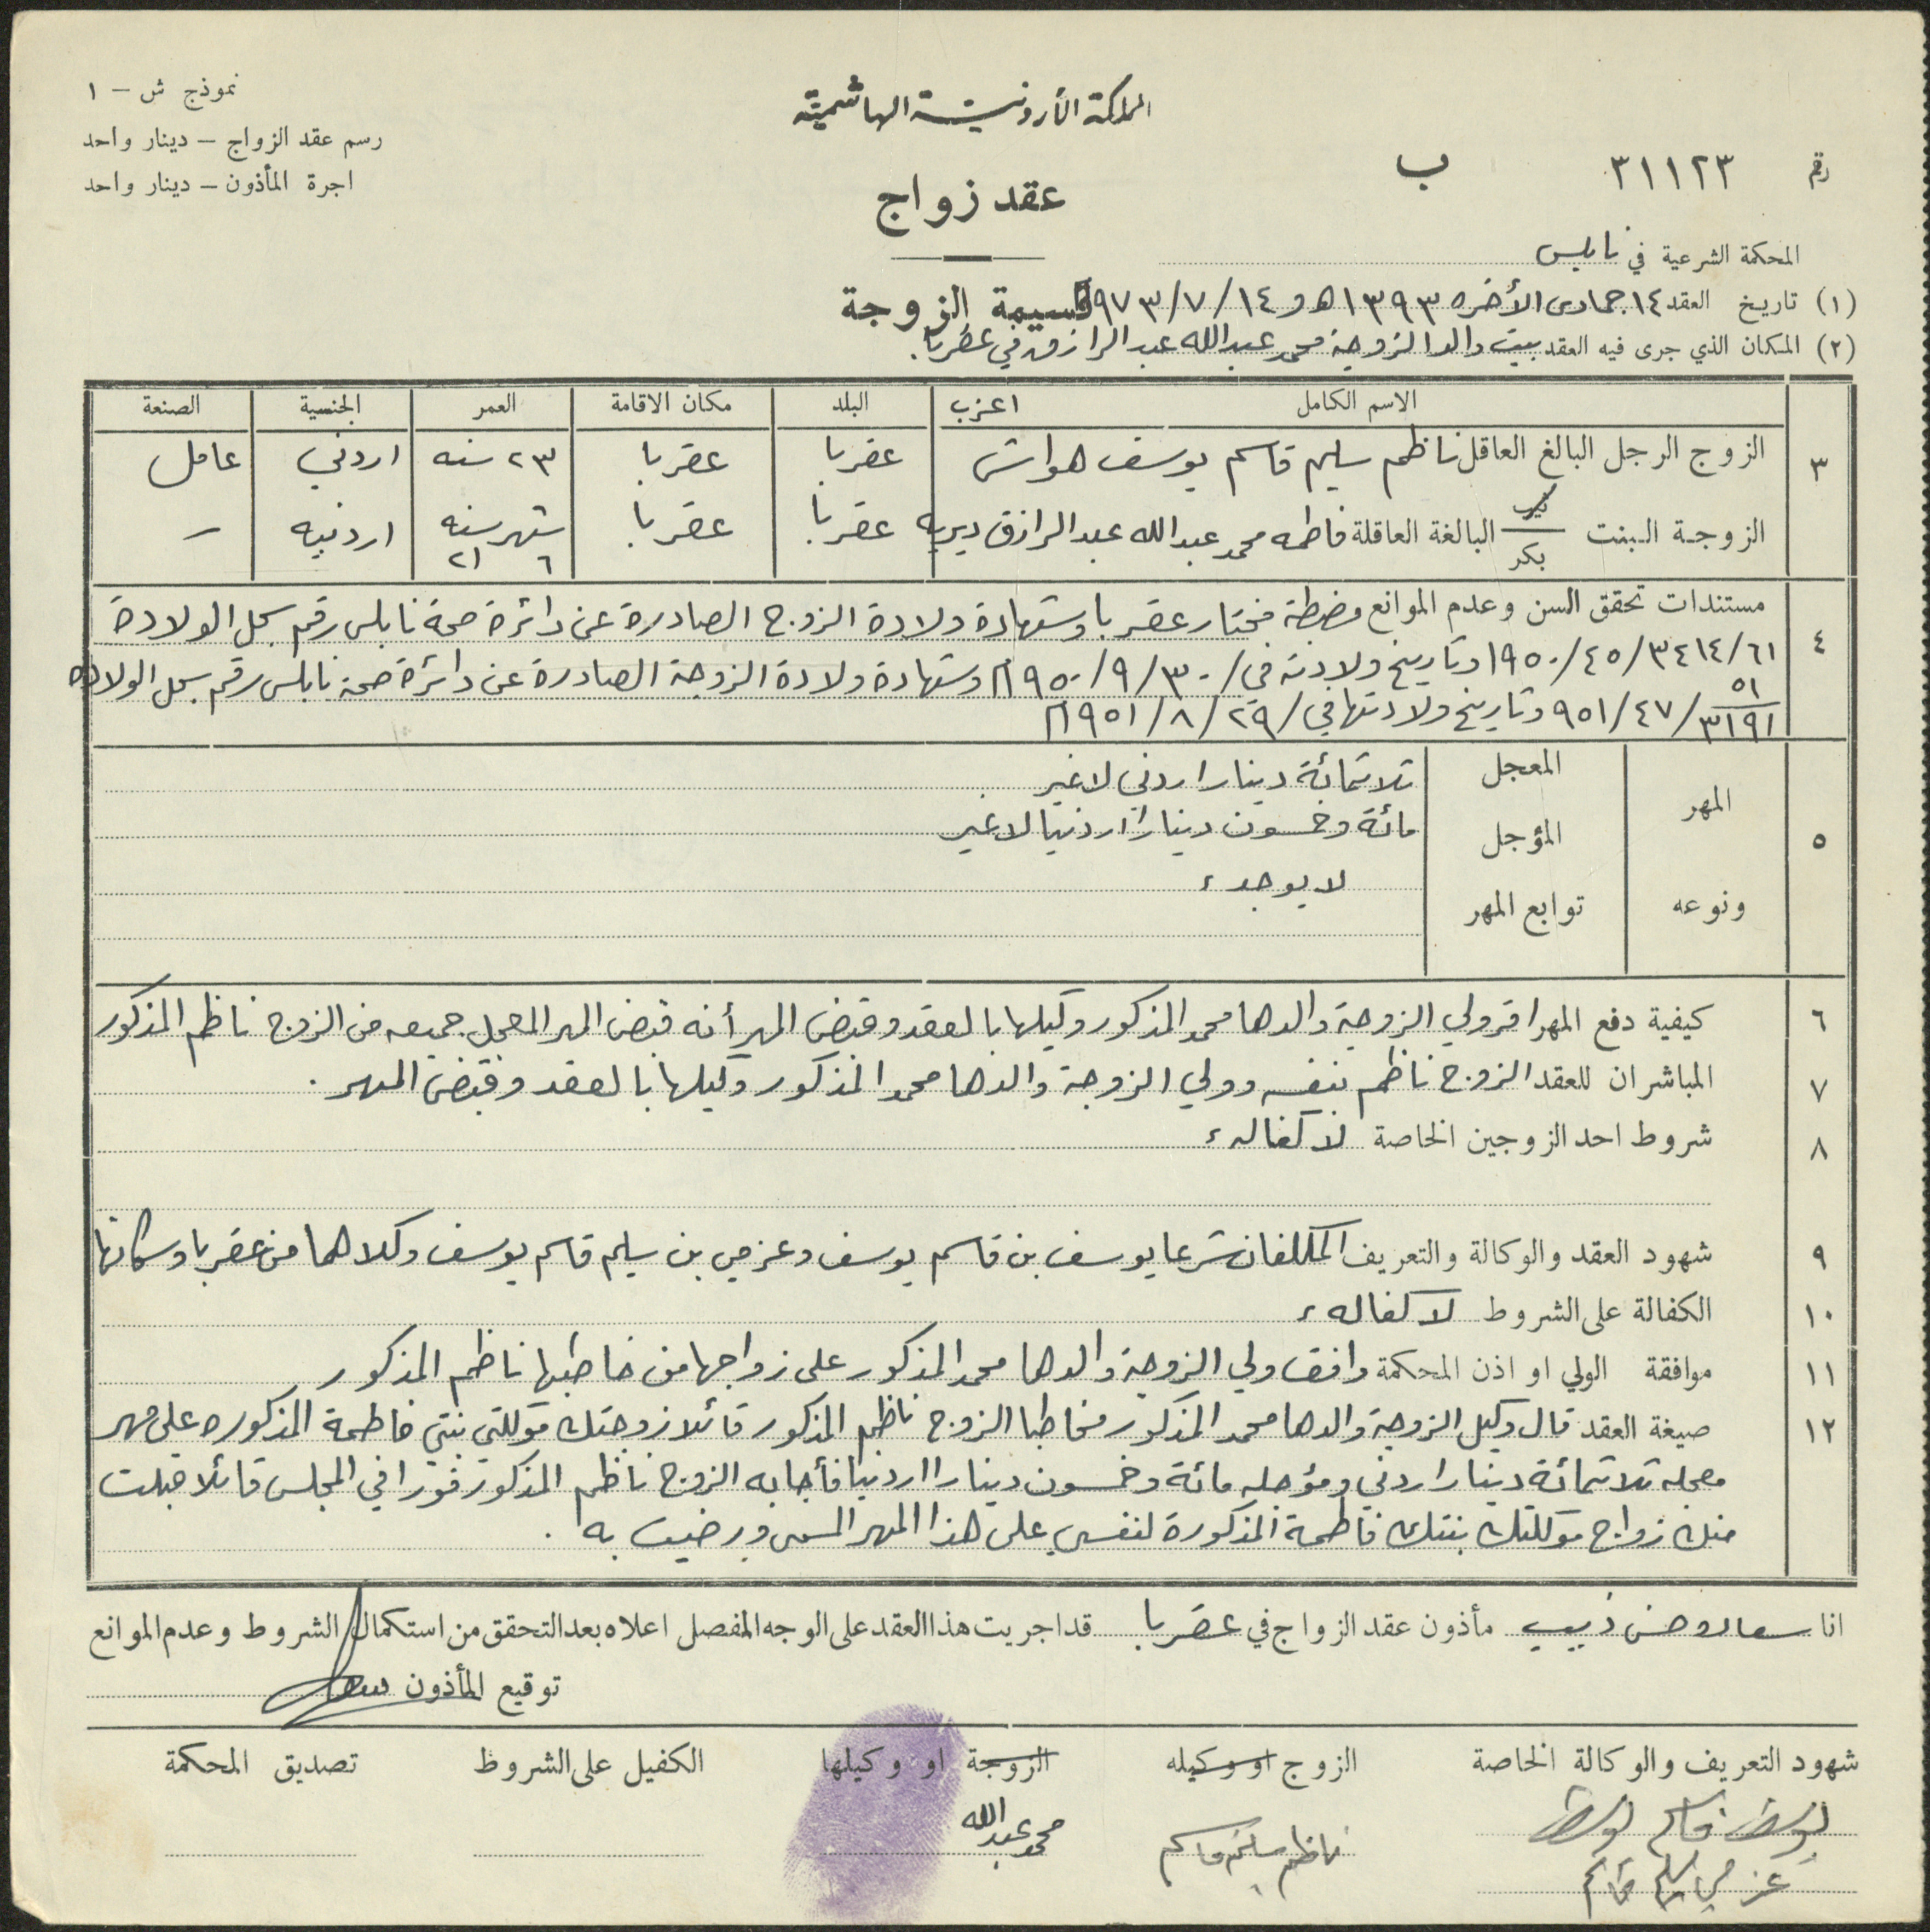 المملكة الأردنيّة الهاشميّة
نموذج ش – ١
رسم عقد الزواج – دينار واحد
اجرة المأذون – دينار واحد
رقم ٣١١٢٣ ب
عقد زواج
المحكمة الشرعية في نابلس
(١) تاريخ العقد ١٤ جمادى الأخره ١٣٩٣ هـ و ١٤ / ٧ / ٩٧٣
قسيمة الزوجة
(٢) المكان الذي جرى فيه العقد بيت والد الزوجة محمد عبدالله عبد الرازق في عقربا.
الاسم الكامل اعزب البلد مكان الاقامة العمر الجنسية الصنعة
٣ الزوج الرجل البالغ العاقل ناظم سليم قاسم يوسف هواش عقربا عقربا ٢٣ سنه اردني عامل
الزوجة البنت ثيب بكر البالغة العاقلة فاطمه محمد عبدالله عبد الرازق ديريه عقربا عقربا شهر ٦ سنه ٢١ اردنيه –
٤ مستندات تحقق السن وعدم الموانع مضبطة مختار عقربا وشهادة ولادة الزوج الصادرة عن دائرة صحة نابلس رقم سجل الولادة
٣٤١٤/٦١ /٤٥ /١٩٥٠ وتاريخ ولادته في / ٣٠ /٩ /١٩٥٠م وشهادة ولادة الزوجة الصادرة عن دائرة صحة نابلس رقم سجل الولاده
٥١
٣١٩١ /٤٧ /٩٥١ وتاريخ ولادتها في / ٢٩ / ٨ / ١٩٥١م
٥ المهر ونوعه
المعجل ثلاثمائة دينار اردني لا غير
المؤجل مائة وخمسون دينارا اردنيا لا غير
توابع المهر لا يوجد ء
٦ كيفية دفع المهر اقر ولي الزوجة والدها محمد المذكور وكيلها بالعقد وقبض المهر أنه قبض المهر المعجل جميعه من الزوج ناظم المذكور
٧ المباشران للعقد الزوج ناظم بنفسه وولي الزوجة والدها محمد المذكور وكيلها بالعقد وقبض المهر .
٨ شروط احد الزوجين الخاصة لا كفاله ء
٩ شهود العقد والوكالة والتعريف المكلفان شرعا يوسف بن قاسم يوسف وعزمي بن سليم قاسم يوسف وكلاهما من عقربا وسكانها
١٠ الكفالة على الشروط لا كفاله ء
١١ موافقة الولي او اذن المحكمة وافق ولي الزوجة والدها محمد المذكور على زواجها من خاطبها ناظم المذكور
١٢ صيغة العقد قال وكيل الزوجة والدها محمد المذكور مخاطبا الزوج ناظم المذكور قائلا زوجتك موكلتي بنتي فاطمة المذكوره على مهر
معجله ثلاثمائة دينار اردني ومؤجله مائة وخمسون دينارا اردنيا فأجابه الزوج ناظم المذكور فورا في المجلس قائلا قبلت
منك زواج موكلتك بنتك فاطمة المذكورة لنفسي على هذا المهر المسمى ورضيت به .
انا حسن ذييب مأذون عقد الزواج في عقربا قد اجريت هذا العقد على الوجه المفصل اعلاه بعد التحقق من استكمال الشروط وعدم الموانع
توقيع المأذون
شهود التعريف والوكالة الخاصة الزوج او وكيله الزوجة او وكيلها الكفيل على الشروط تصديق المحكمة
يوسف قاسم يوسف ناظم سليم قاسم محمد عبدالله
عزمي سليم قاسم